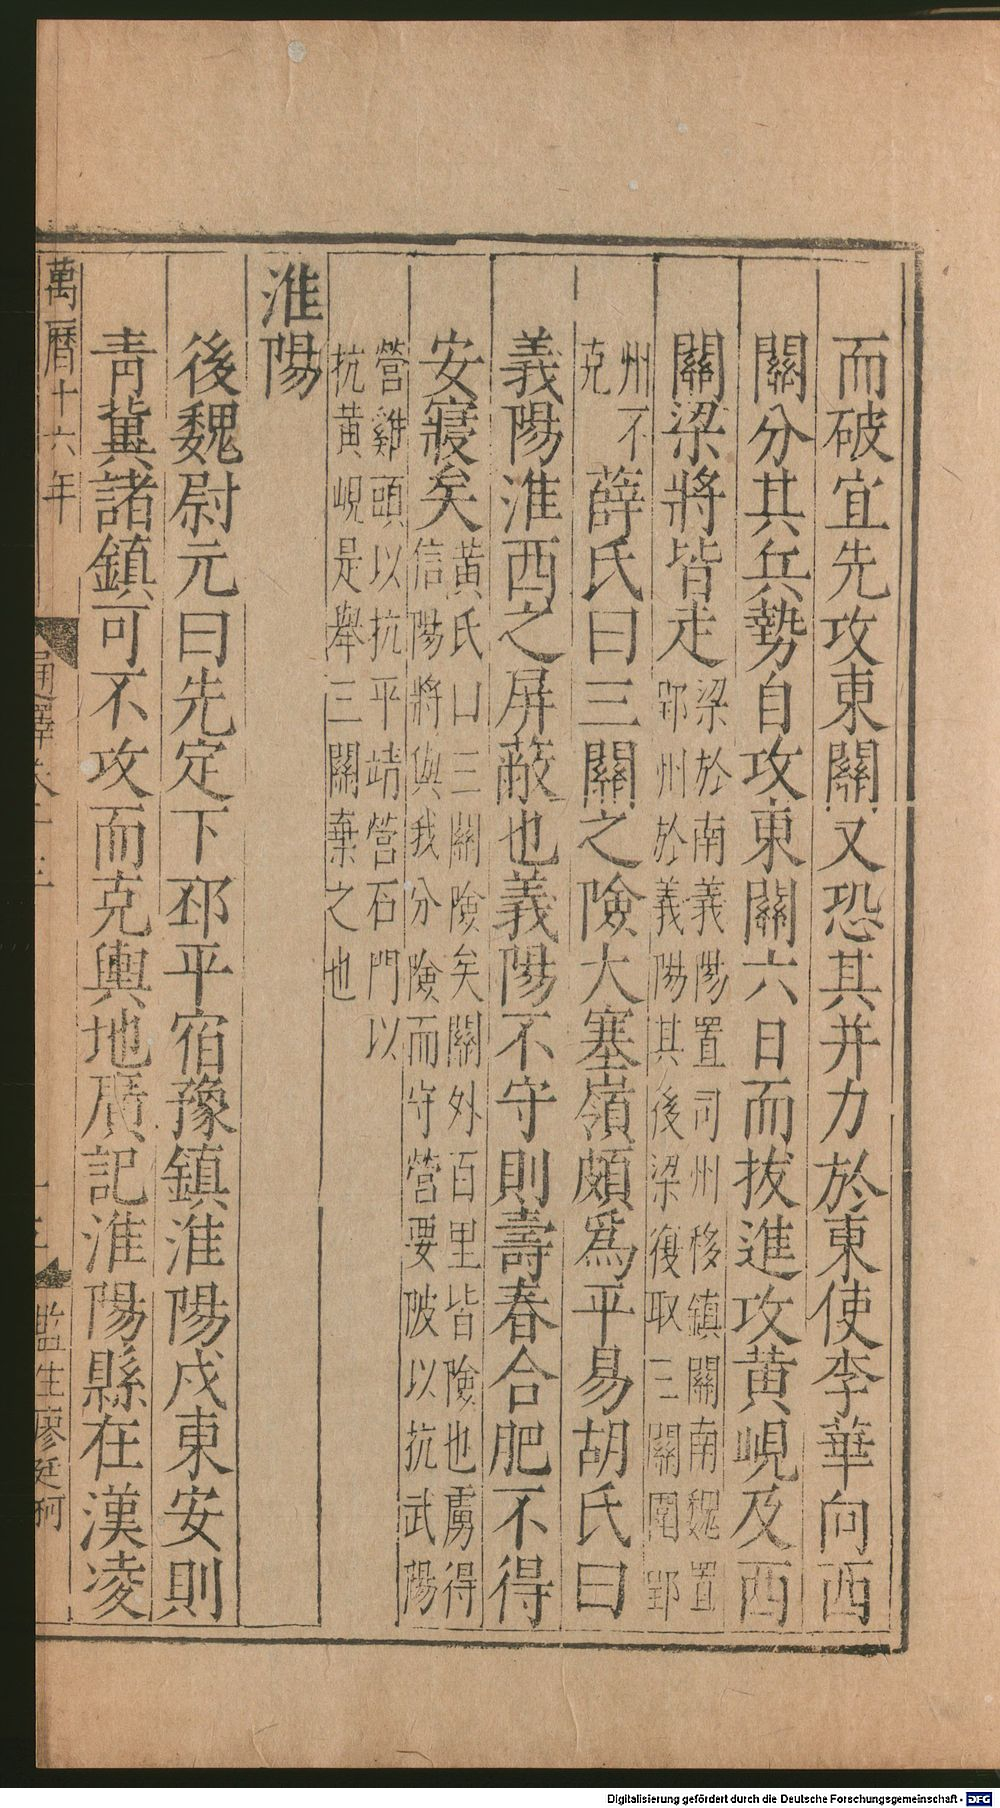 而破宜先攻東關又恐其并力於東使李華向西
關分其兵勢自攻東關六日而拔進攻黃峴及西
關梁將皆走梁於南義陽置司州移鎮關南魏置
郢州於義陽其後梁復取三關圍郢
州不
克
薛氏曰三關之險大塞嶺頗爲平易胡氏曰
義陽淮西之屏蔽也義陽不守則壽春合肥不得
安寢矣黃氏曰三關險矣關外百里皆險也虜得
信陽將與我分險而守營要陂以抗武陽
營雞頭以抗平靖營石門以
抗黃峴是舉三關棄之也
淮陽
後魏尉元曰先定下邳平宿豫鎮淮陽戍東安則
青冀諸鎮可不攻而克輿地廣記淮陽縣在漢凌
萬曆十六年
通釋卷十三
監生廖廷珂
Digitalisierung gefördert durch die Deutsche Forschungsgemeinschaft - DFG